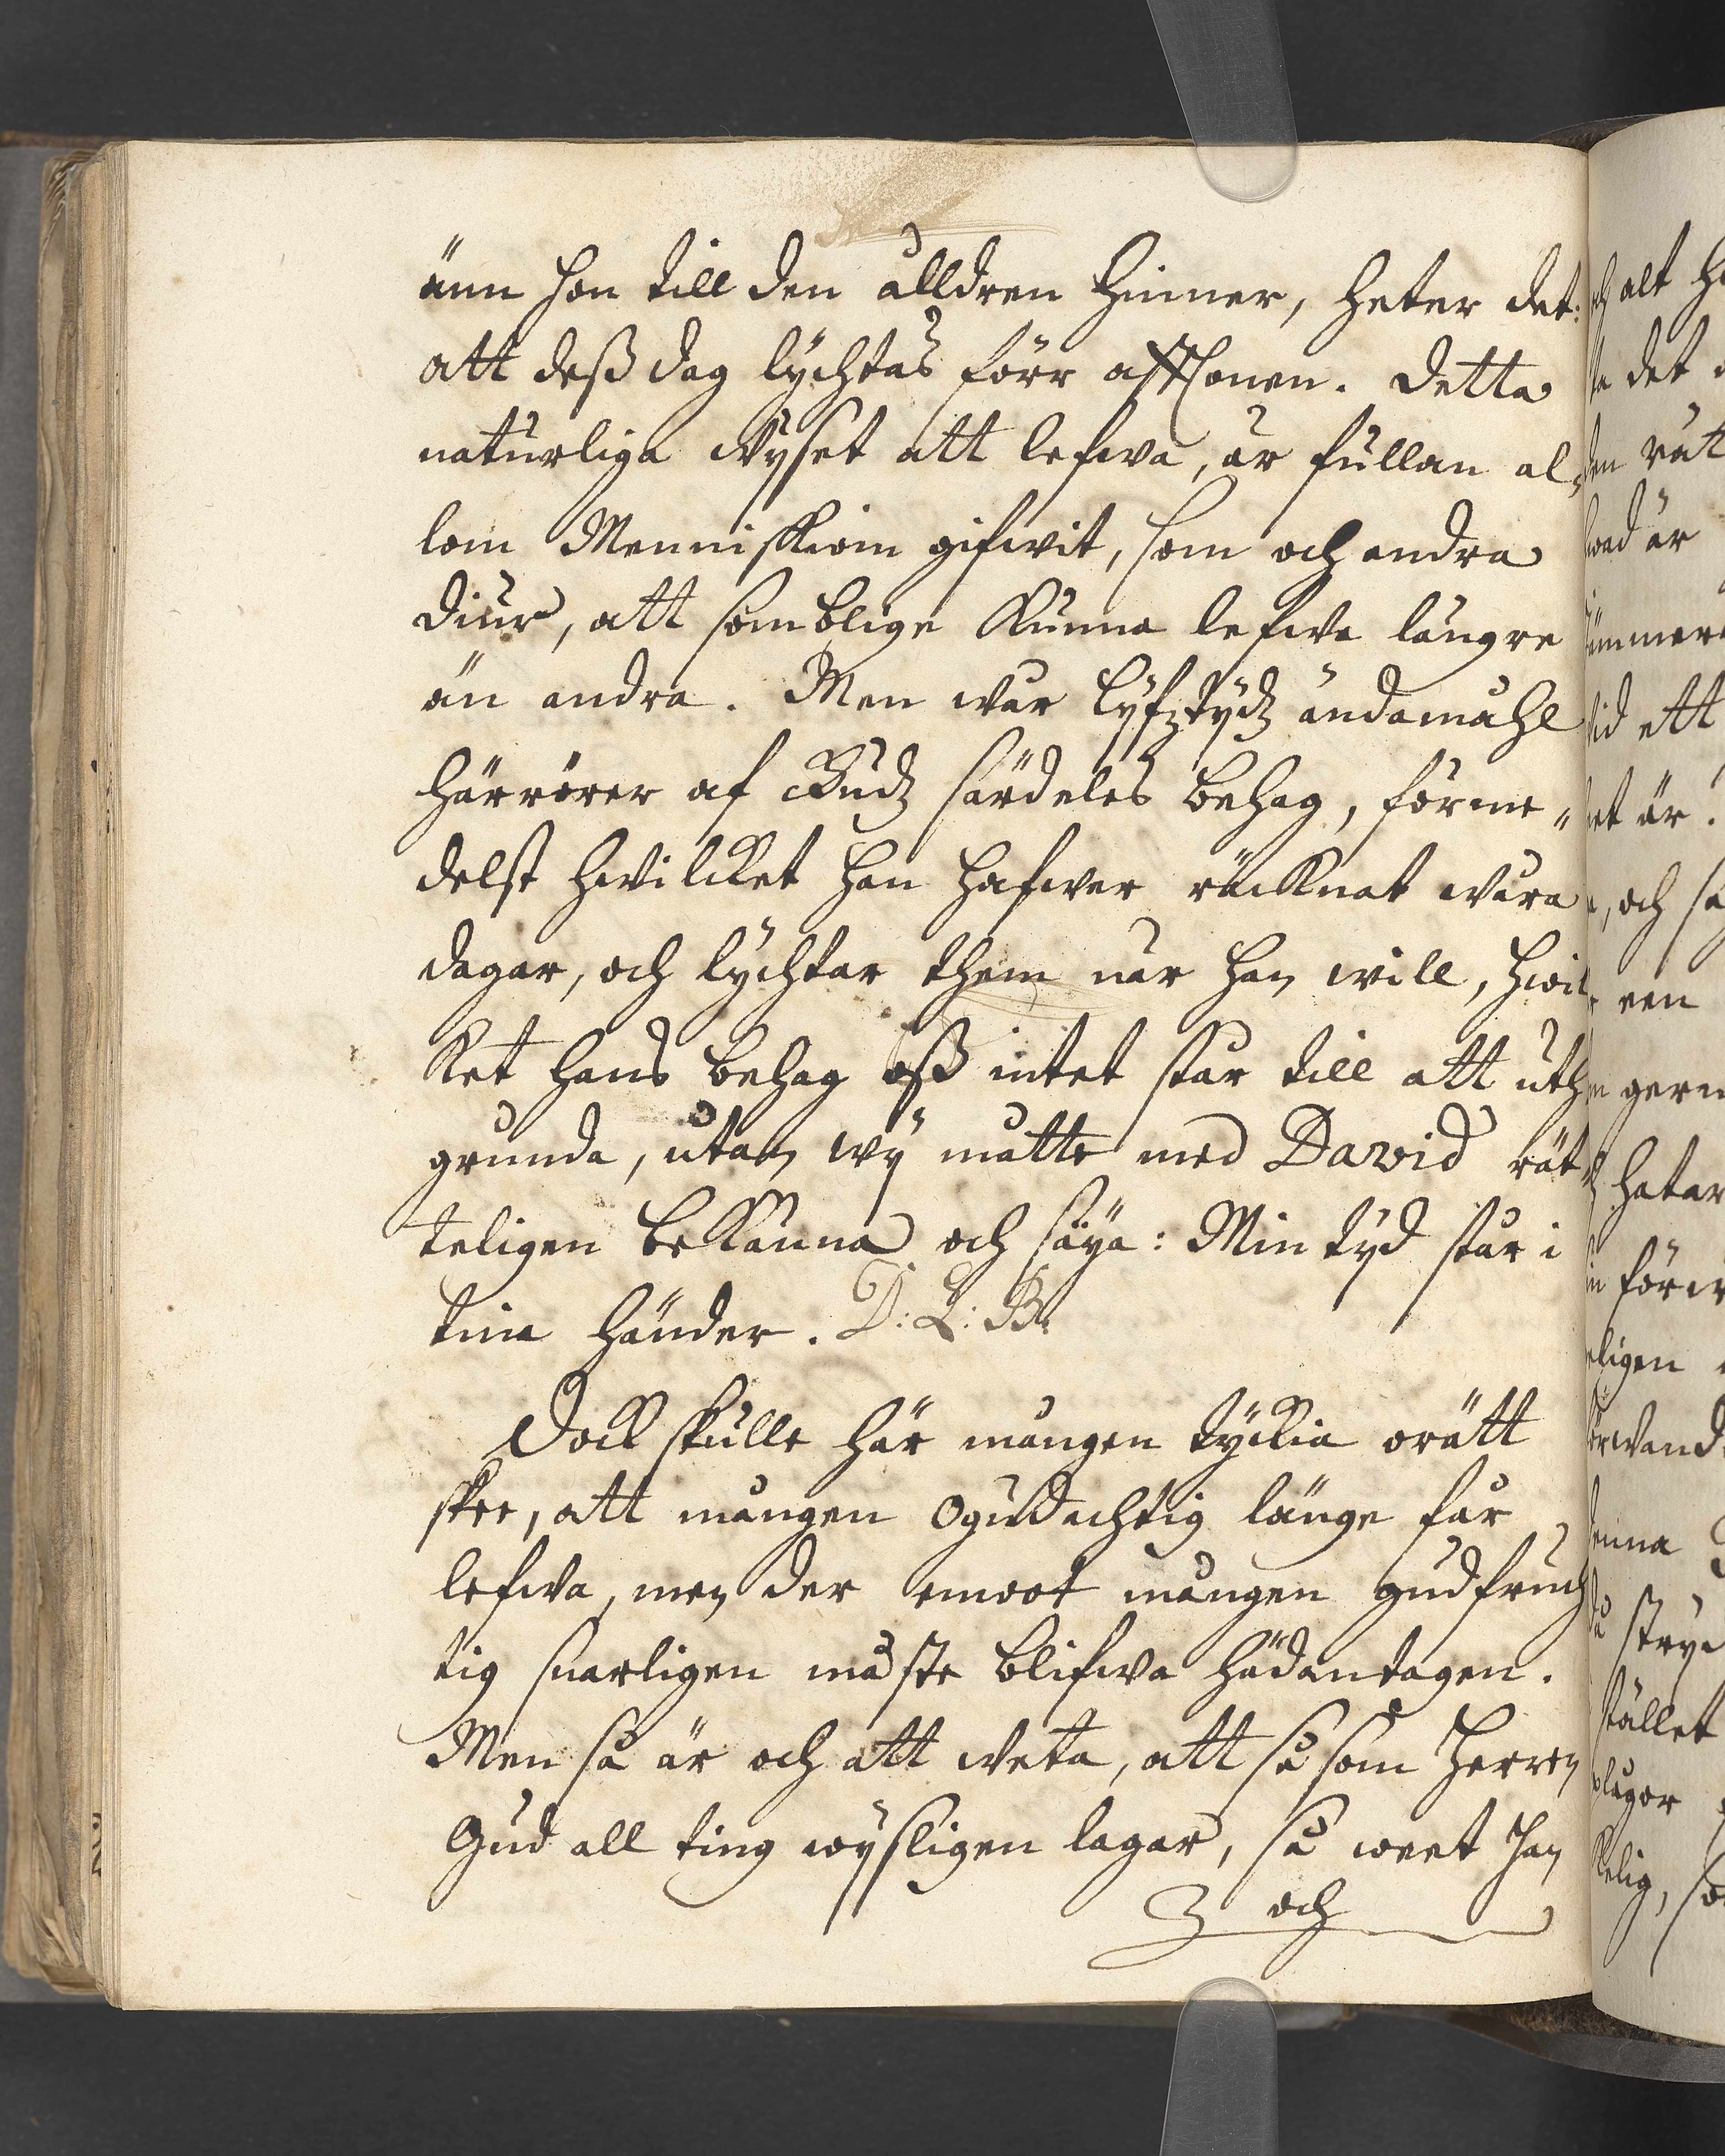 änn hon till den ålldren hinner, heter det:
att deß dag lychtas förr afftonen. Detta
naturliga wyset att lefwa, är fullan al,
lom Menniskiom gifwit, som och andra
diur, att somblige kunna lefwa längre
än andra. Men wår lyfztydz ändamåhl
härrörer af Gudz särdeles behag, förme„
delst hwilcket han hafwer räcknat wåra
dagar, och lychtar them när han will, hwil
ket hans behag oß intet står till att uth
grunda, utan wy måtte med David rät
teligen bekänna och säya: Min tyd står i
tina händer. D: L: B:
Dock skulle här mången tyckia orätt
skee, att mången Ogudachtig länge får
lefwa, men der emoot mången gudfruch
tig snarligen måste blifwa hädantagen.
Men så är och att weta, att så som Herren
Gud all ting wysligen lagar, så weet han
och
och alt
det
rät
är
ett
är.
och
een
gern
hatar
ligen
stället